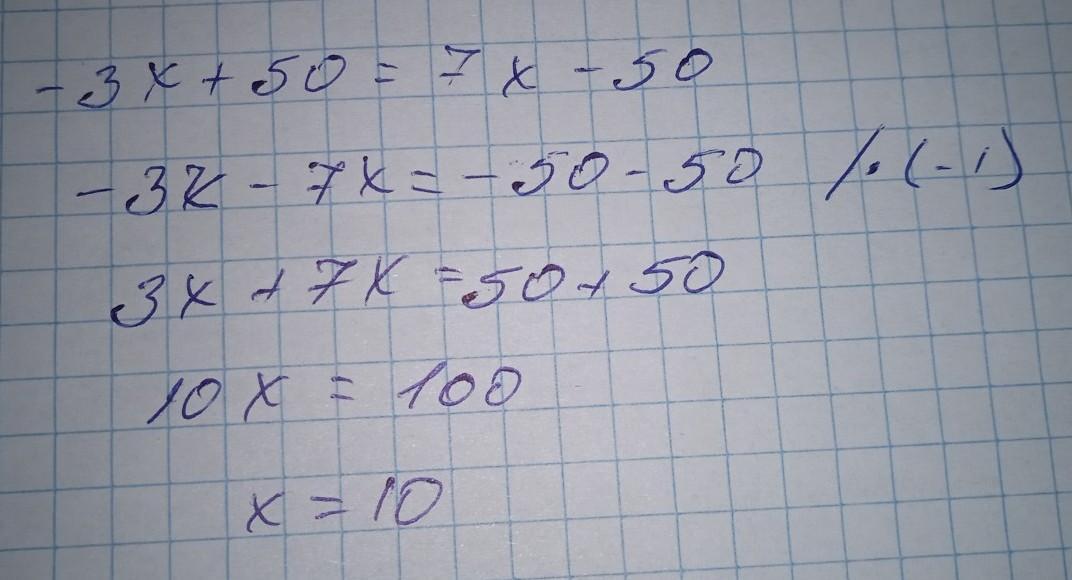 -3x + 50 = 7x - 50
-3x - 7x = -50 - 50 /·(-1)
3x + 7x = 50 + 50
10x = 100
x = 10